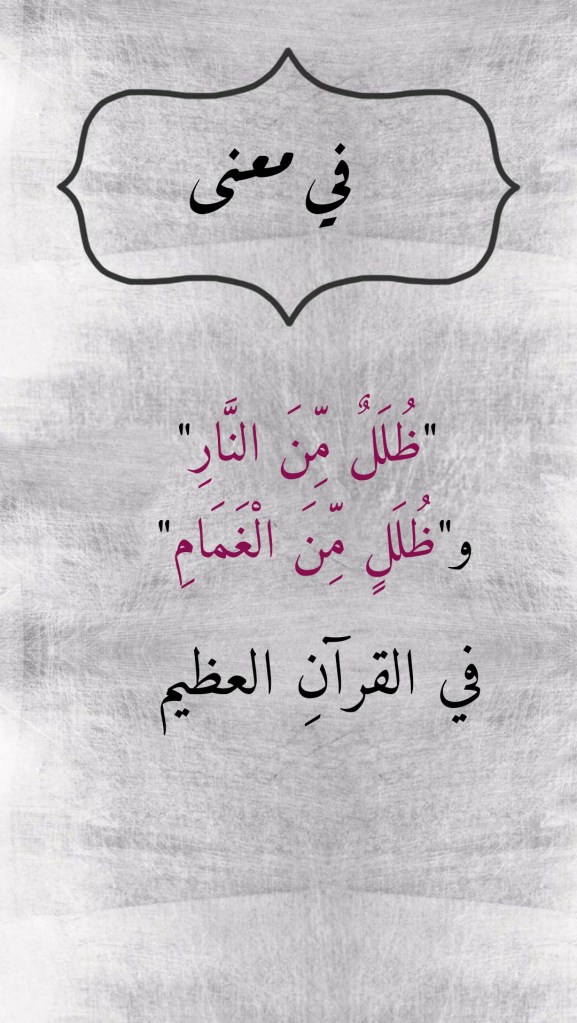 في معنى
"ظُلَلٌ مِّنَ النَّارِ"
و"ظُلَلٍ مِّنَ الْغَمَامِ"
في القرآنِ العظيم